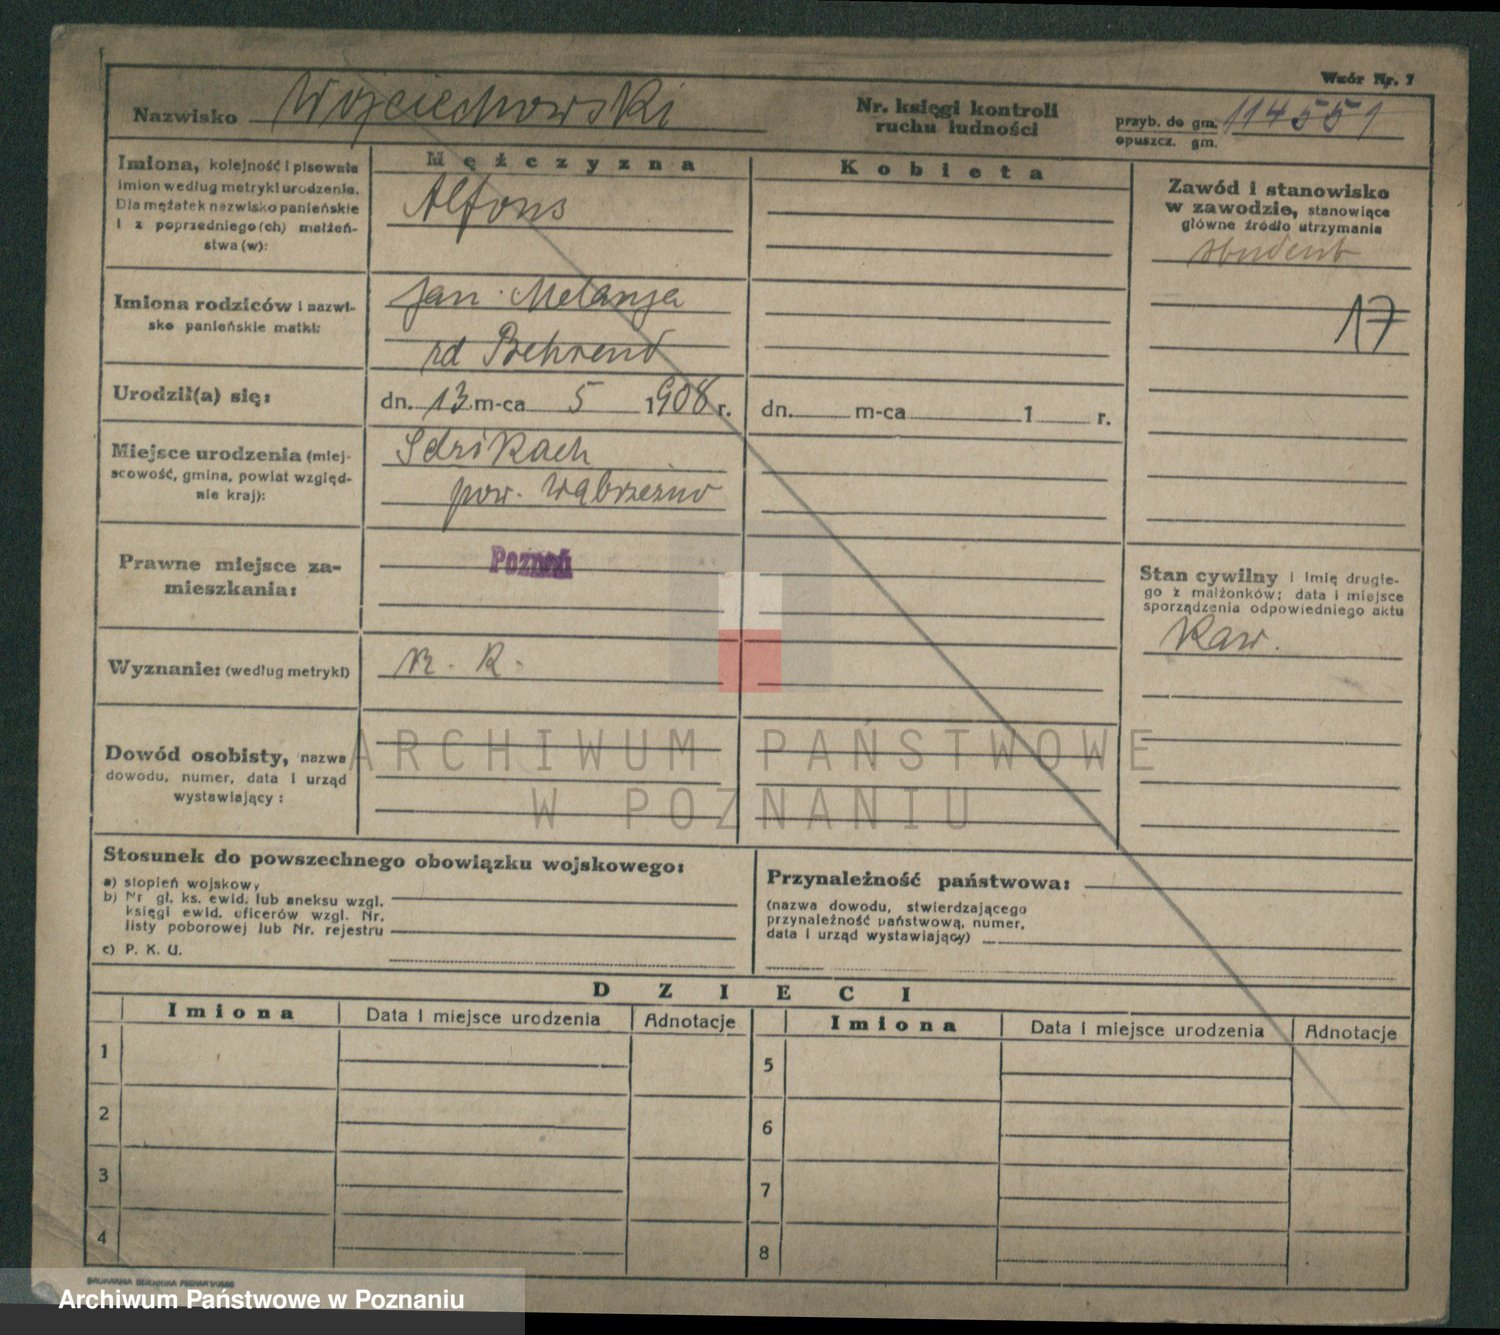 Wzór Nr. 7
Nazwisko Wojciechowski
Nr. księgi kontroli
ruchu ludności
przyb. do gm. 114551
opuszcz. gm.
Imiona, kolejność i pisownia
imion według metryki urodzenia.
Dla mężatek nazwisko panieńskie
i z poprzedniego (ch) małżeń-
stwa (w):
Mężczyzna
Alfons
Kobieta
Zawód i stanowisko
w zawodzie, stanowiące
główne źródło utrzymania
student
17
Imiona rodziców i nazwi-
sko panieńskie matki:
Jan. Melanja
rd Behrend
Urodził(a) się:
dn. 13 m-ca 5 1908 r.
dn. m-ca 1 r.
Miejsce urodzenia (miej-
scowość, gmina, powiat względ-
nie kraj):
pow. Wąbrzeźno
Prawne miejsce za-
mieszkania:
Poznań
Stan cywilny i imię drugie-
go z małżonków; data i miejsce
sporządzenia odpowiedniego aktu
Kaw.
Wyznanie: (według metryki)
R. K.
Dowód osobisty, nazwa
dowodu, numer, data i urząd
wystawiający:
ARCHIWUM PAŃSTWOWE
W POZNANIU
Stosunek do powszechnego obowiązku wojskowego:
a) stopień wojskowy
b) Nr gł. ks. ewid. lub aneksu wzgl.
księgi ewid. oficerów wzgl. Nr.
listy poborowej lub Nr. rejestru
c) P. K. U.
Przynależność państwowa:
(nazwa dowodu, stwierdzającego
przynależność państwową, numer,
data i urząd wystawiający)
DZIECI
Imiona Data i miejsce urodzenia Adnotacje Imiona Data i miejsce urodzenia Adnotacje
1 5
2 6
3 7
4 8
Archiwum Państwowe w Poznaniu